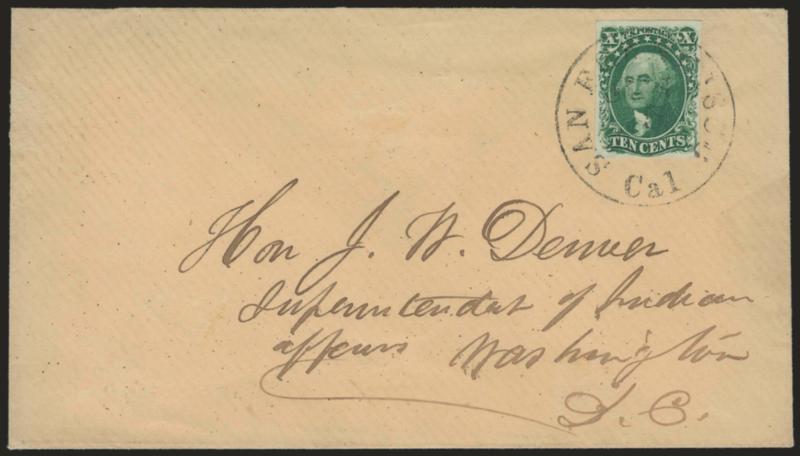 X U.S.POSTAGE X
TEN CENTS
SAN
Cal
Hon J. W. Denver
Superintendat of Indian
affairs Washington
D.C.